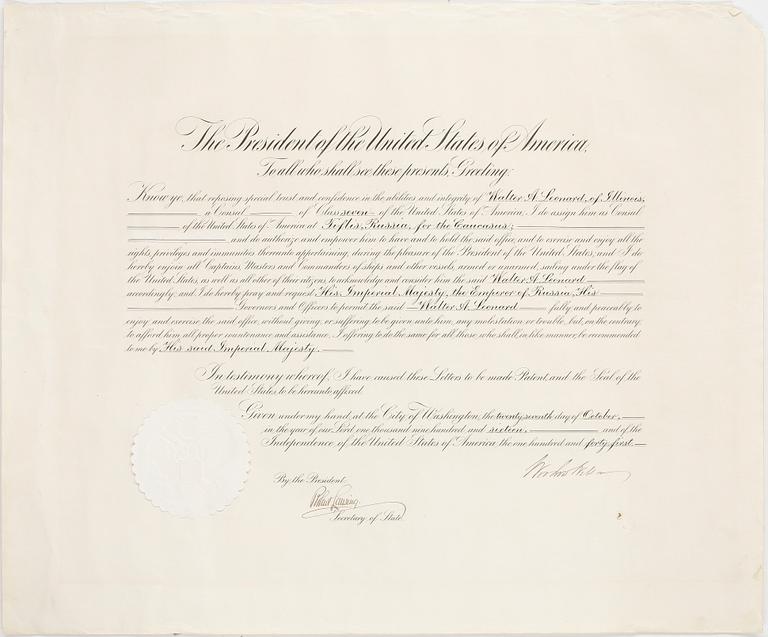 The President of the United States of America,
To all who shall see these presents, Greeting:
Know ye, that reposing special trust and confidence in the abilities and integrity of Walter A. Leonard, of Illinois,
a Consul of Class seven of the United States of America, I do assign him as Consul
of the United States of America at Tiflis, Russia, for the Caucasus;
and to authorize and empower him to have and to hold the said office, and to exercise and enjoy all the
rights, privileges and immunities thereunto appertaining, during the pleasure of the President of the United States; and I do
hereby enjoin all Captains, Masters and Commanders of ships and other vessels, armed or unarmed, sailing under the flag of
the United States, as well as all other of their citizens, to acknowledge and consider him the said Walter A. Leonard
accordingly; and I do hereby pray and request His Imperial Majesty, the Emperor of Russia, His
Governors and Officers to permit the said Walter A. Leonard fully and peaceably to
enjoy and exercise the said office, without giving, or suffering to be given unto him, any molestation or trouble, but, on the contrary,
to afford him all proper countenance and assistance; I offering to do the same for all those who shall, in like manner, be recommended
to me by His said Imperial Majesty.
In testimony whereof, I have caused these Letters to be made Patent, and the Seal of the
United States to be hereunto affixed.
Given under my hand, at the City of Washington, the twenty-seventh day of October,
in the year of our Lord one thousand nine hundred and sixteen, and of the
Independence of the United States of America, the one hundred and forty-first.
Woodrow Wilson
By the President:
Robert Lansing
Secretary of State.